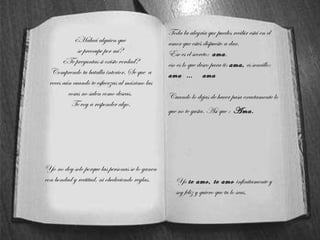 ¿Habrá alguien que
se preocupe por mí?
¿Te preguntas si existe verdad?
Comprendo tu batalla interior. Se que a
veces aún cuando te esfuerzas al máximo las
cosas no salen como deseas.
Te voy a responder algo.
Yo no doy solo porque las personas se lo ganen
con bondad y rectitud, ni obedeciendo reglas.
Toda la alegría que puedes recibir está en el
amor que estés dispuesto a dar.
Ese es el secreto: ama.
eso es lo que deseo para ti: ama, es sencillo:
ama ... ama
Cuando lo dejas de hacer pasa exactamente lo
que no te gusta. Así que : Ama.
Yo te amo, te amo infinitamente y
soy feliz y quiero que tu lo seas.